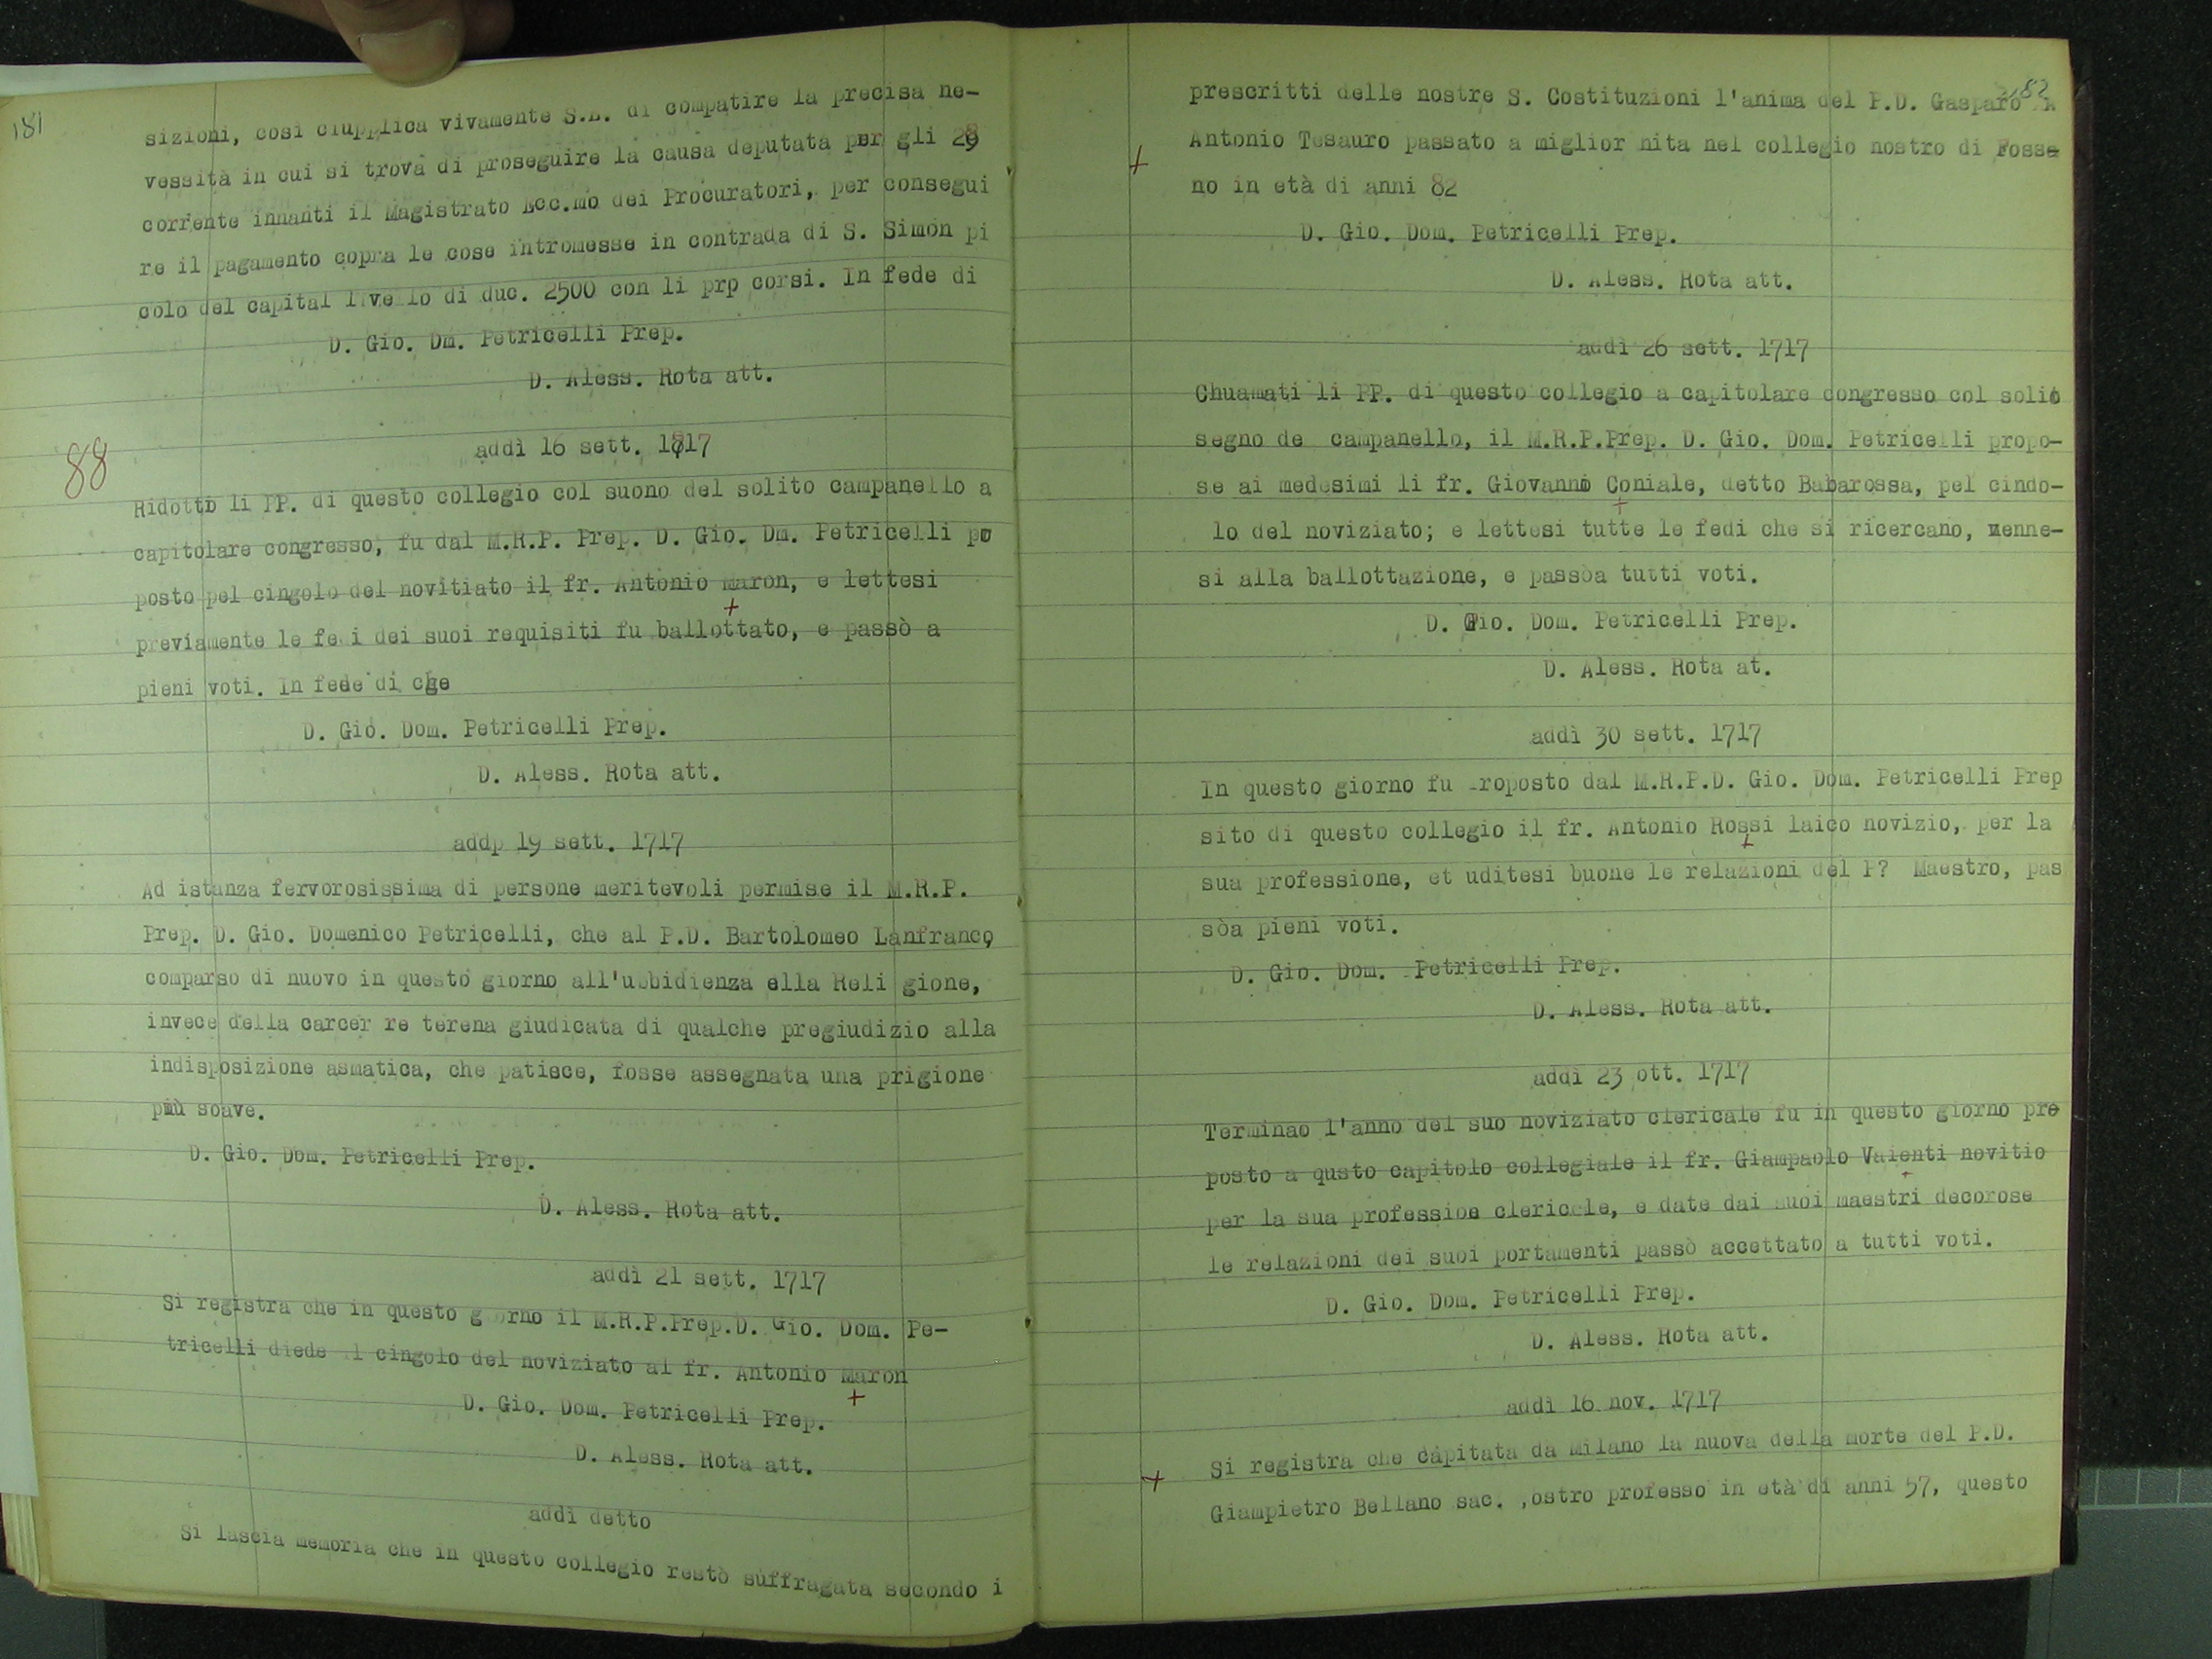 181
sizioni, così ciupplica vivamente S.E. di compatire la precisa ne-
vessità in cui si trova di proseguire la causa deputata per gli 28
corrente innanti il Magistrato Ecc.mo dei Procuratori, per consegui
re il pagamento copra le cose intromesse in contrada di S. Simon pi
colo del capital livello di duc. 2500 con li prp corsi. In fede di
D. Gio. Dm. Petricelli Prep.
D. Aless. Rota att.
88
addì 16 sett. 1717
Ridotti li PP. di questo collegio col suono del solito campanello a
capitolare congresso, fu dal M.R.P. Prep. D. Gio. Dm. Petricelli po
posto pel cingolo del novitiato il fr. Antonio Maron, e lettesi
previamente le fedi dei suoi requisiti fu ballottato, e passò a
pieni voti. In fede di che
D. Gio. Dom. Petricelli Prep.
D. Aless. Rota att.
addp 19 sett. 1717
Ad istanza fervorosissima di persone meritevoli permise il M.R.P.
Prep. D. Gio. Domenico Petricelli, che al P.D. Bartolomeo Lanfranco,
comparso di nuovo in questo giorno all'ubbidienza ella Reli gione,
invece della carcer re terena giudicata di qualche pregiudizio alla
indisposizione asmatica, che patisce, fosse assegnata una prigione
più soave.
D. Gio. Dom. Petricelli Prep.
D. Aless. Rota att.
addì 21 sett. 1717
Si registra che in questo giorno il M.R.P.Prep.D. Gio. Dom. Pe-
tricelli diede il cingolo del noviziato al fr. Antonio Maron
D. Gio. Dom. Petricelli Prep.
D. Aless. Rota att.
addì detto
Si lascia memoria che in questo collegio restò suffragata secondo i
182
prescritti delle nostre S. Costituzioni l'anima del P.D. Gasparo
Antonio Tesauro passato a miglior nita nel collegio nostro di Fosse
no in età di anni 82
D. Gio. Dom. Petricelli Prep.
D. Aless. Rota att.
addì 26 sett. 1717
Chuamati li PP. di questo collegio a capitolare congresso col solio
segno de campanello, il M.R.P.Prep. D. Gio. Dom. Petricelli propo-
se ai medesimi li fr. Giovanni Coniale, detto Babarossa, pel cindo-
lo del noviziato; e lettesi tutte le fedi che si ricercano, venne-
si alla ballottazione, e passòa tutti voti.
D. Gio. Dom. Petricelli Prep.
D. Aless. Rota at.
addì 30 sett. 1717
In questo giorno fu Proposto dal M.R.P.D. Gio. Dom. Petricelli Prep
sito di questo collegio il fr. Antonio Rossi laico novizio, per la
sua professione, et uditesi buone le relazioni del P? Maestro, pas
sòa pieni voti.
D. Gio. Dom. Petricelli Prep.
D. Aless. Rota att.
addì 23 ott. 1717
Terminao l'anno del suo noviziato clericale fu in questo giorno pro
posto a qusto capitolo collegiale il fr. Giampaolo Vaienti novitio
per la sua professioe clericale, e date dai suoi maestri decorose
le relazioni dei suoi portamenti passò accettato a tutti voti.
D. Gio. Dom. Petricelli Prep.
D. Aless. Rota att.
addì 16 nov. 1717
Si registra che capitata da Milano la nuova della morte del P.D.
Giampietro Bellano sac. ,ostro professo in età di anni 57, questo